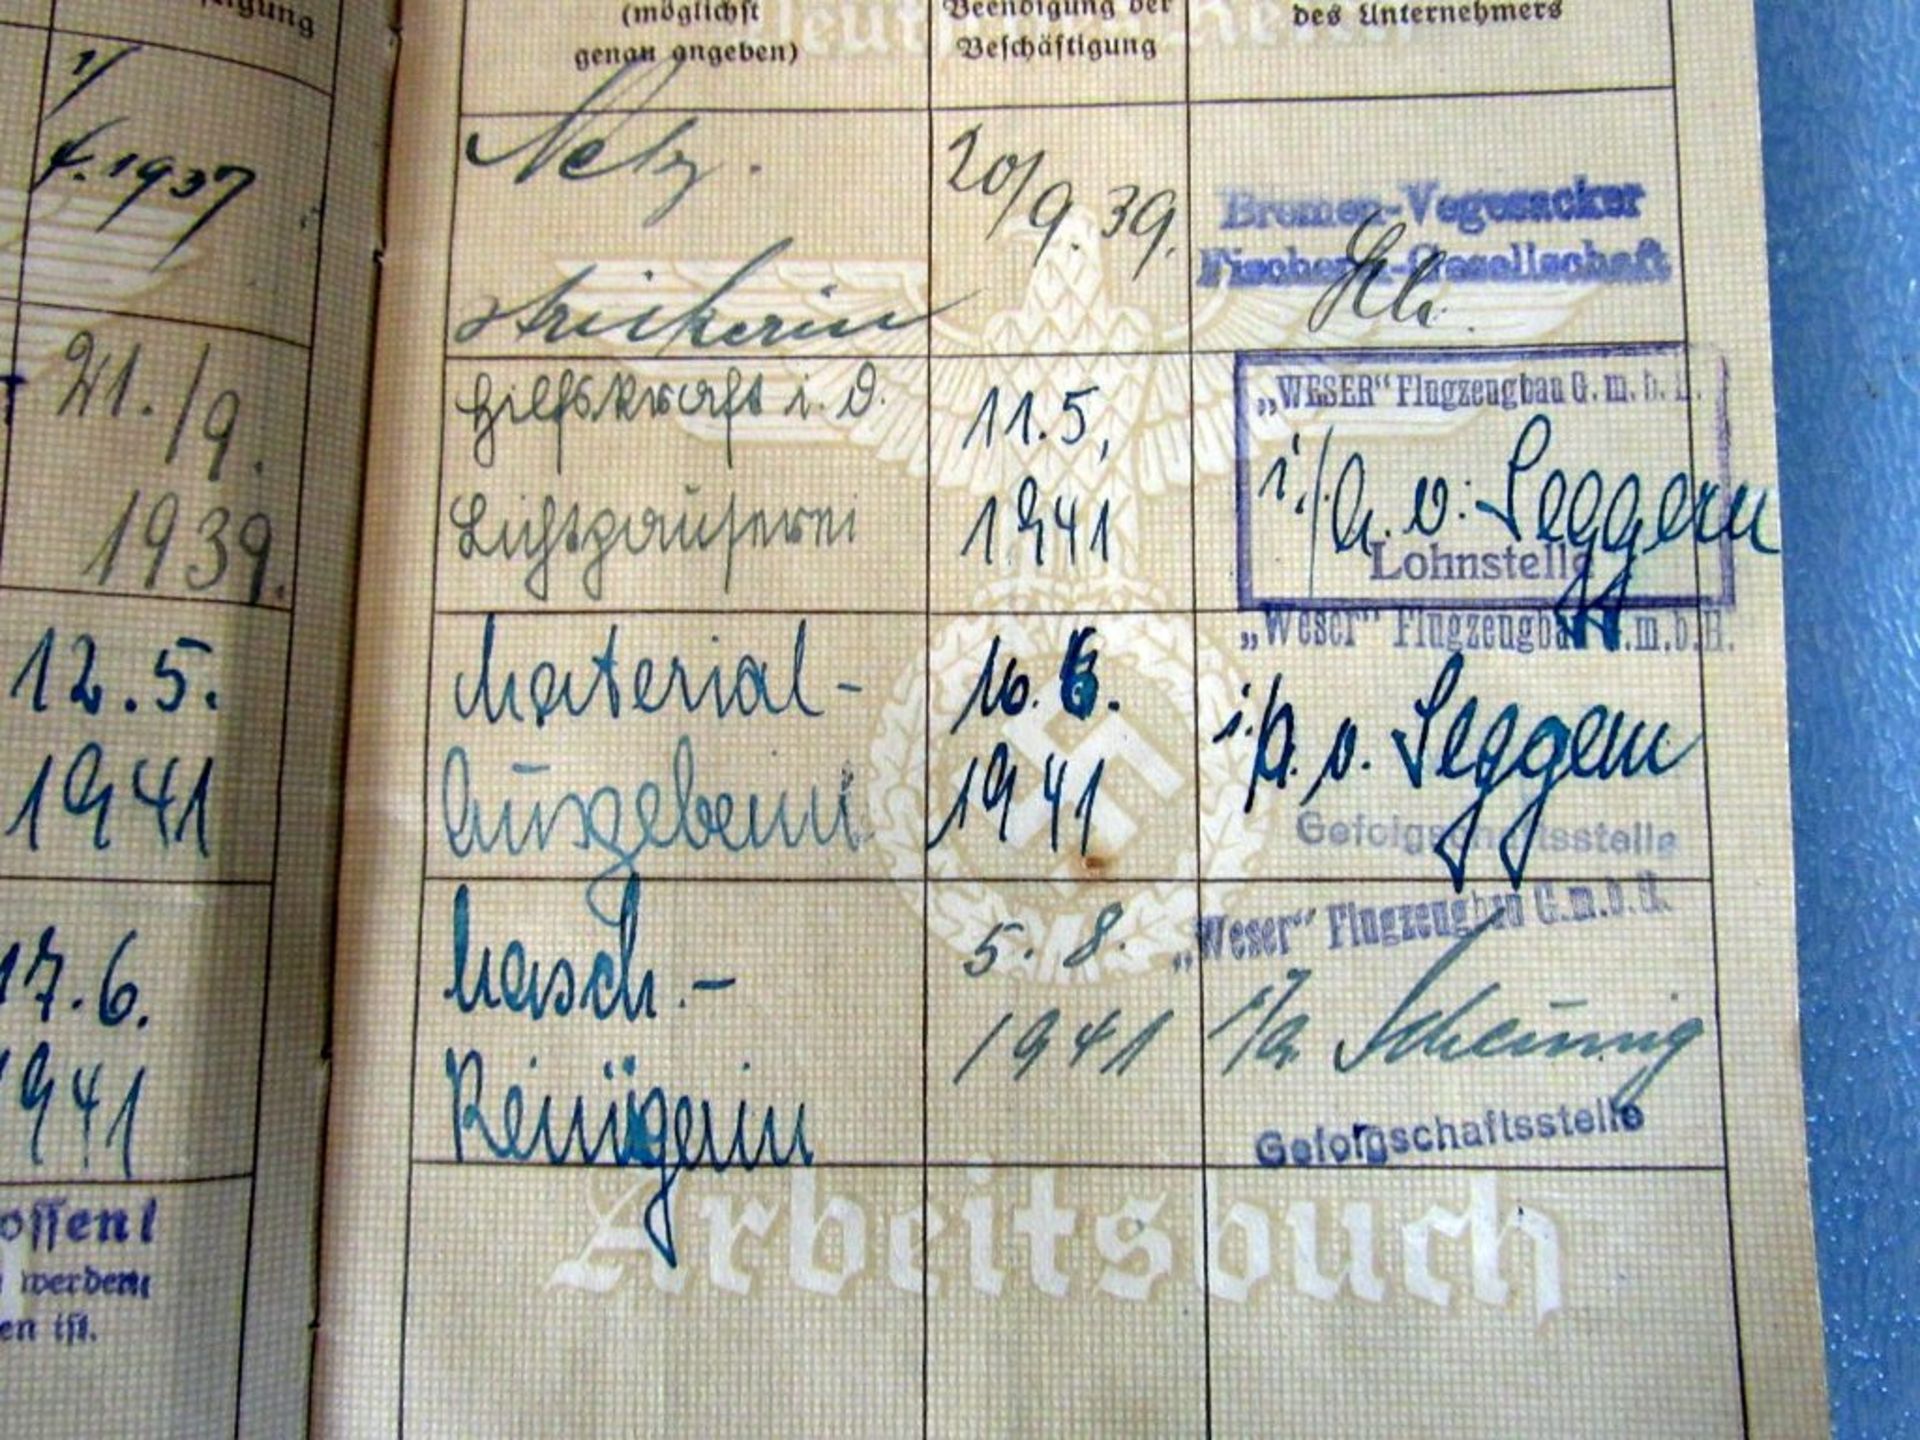 igung
(möglichst
genau angeben)
Beendigung der
Beschäftigung
des Unternehmers
1/
4.1937
Netz.
strickerin
20/9.39.
Bremen-Vegesacker
Fischerei-Gesellschaft
21./9.
1939.
Hilfskraft i. d.
Lichtpauserei
11.5,
1941
„WESER“ Flugzeugbau G.m.b.H.
i./A. v. Seggern
Lohnstelle
12.5.
1941
Material-
Ausgeberin
16.6.
1941
„Weser“ Flugzeugbau G.m.b.H.
i./A. v. Seggern
Gefolgschaftsstelle
17.6.
1941
Masch.-
Reinigerin
5.8.
1941
„Weser“ Flugzeugbau G.m.b.H.
i/A.
Gefolgschaftsstelle
offen!
werden
en ist.
Arbeitsbuch